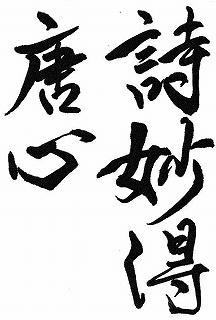 詩妙得
唐心